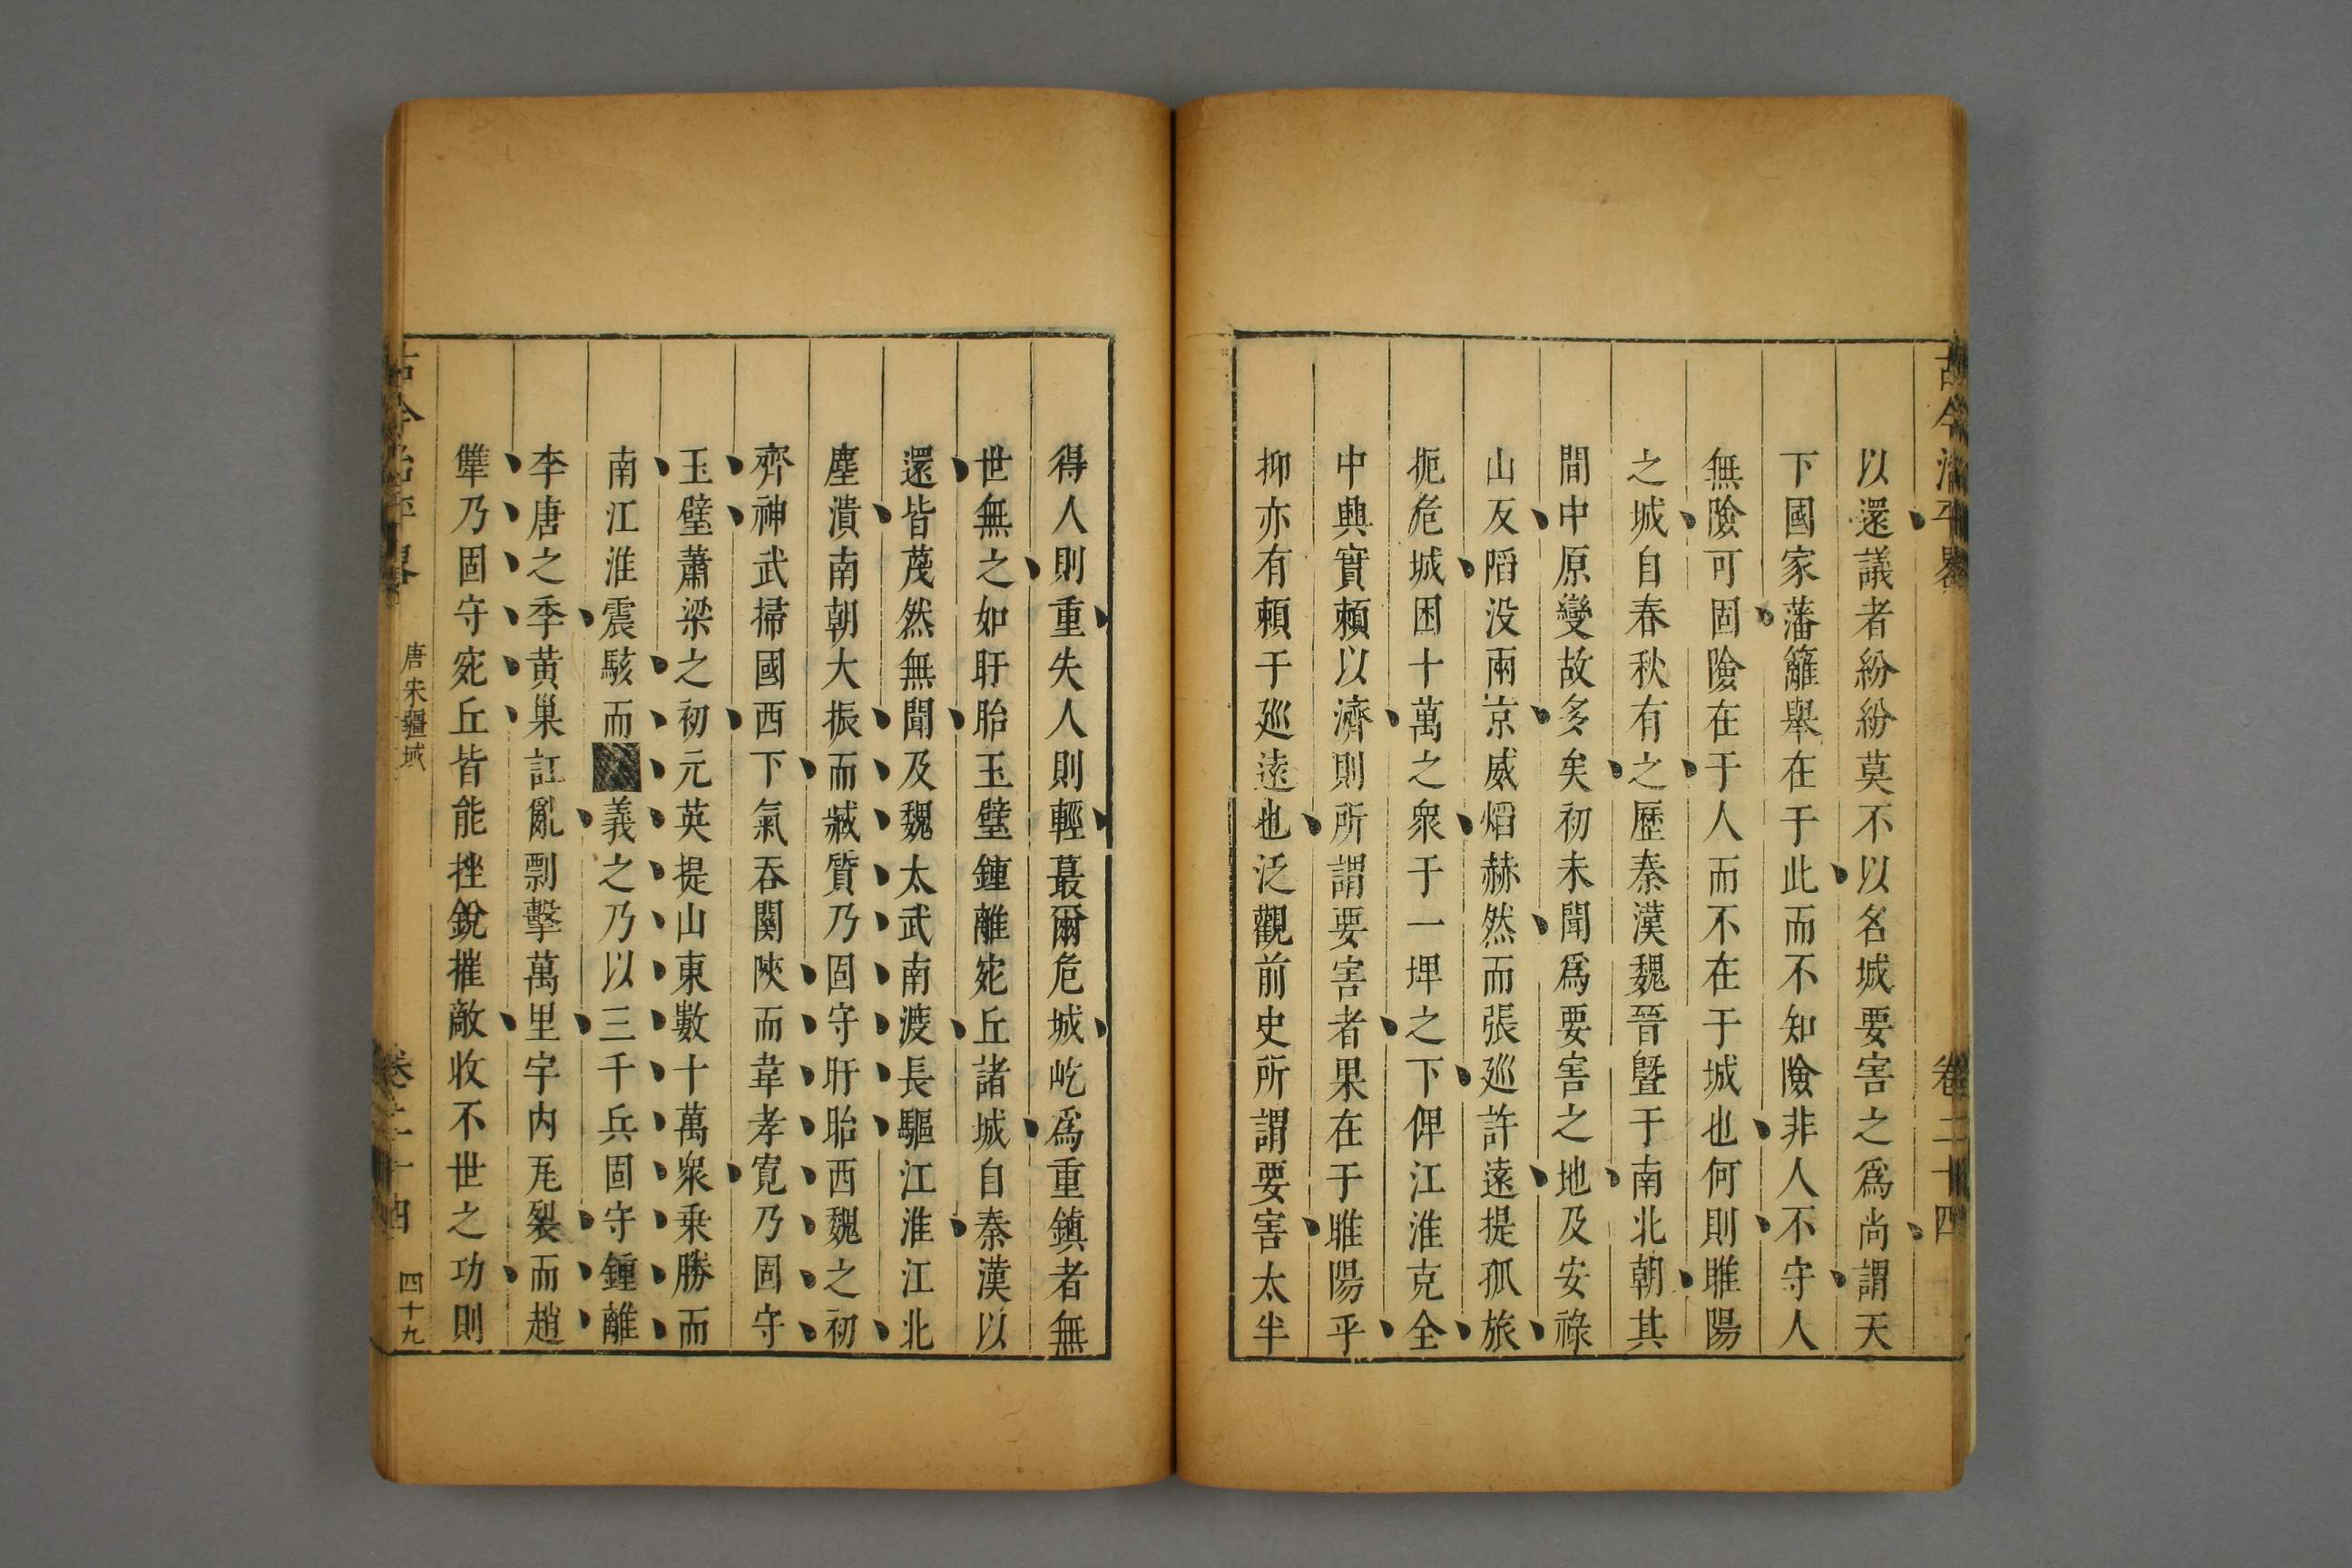 古今治平畧
卷二十四
以還議者紛紛莫不以名城要害之爲尚謂天
下國家藩籬舉在于此而不知險非人不守人
無險可固險在于人而不在于城也何則睢陽
之城自春秋有之歷秦漢魏晉暨于南北朝其
間中原變故多矣初未聞爲要害之地及安祿
山反陷没兩京威熖赫然而張廵許遠提孤旅
扼危城困十萬之衆于一埤之下俾江淮克全
中興實賴以濟則所謂要害者果在于睢陽乎
抑亦有賴于廵遠也泛觀前史所謂要害太半
得人則重失人則輕蕞爾危城屹爲重鎮者無
世無之如盱胎玉璧鍾離宛丘諸城自秦漢以
還皆蔑然無聞及魏太武南渡長驅江淮江北
塵潰南朝大振而臧質乃固守盱眙西魏之初
齊神武掃國西下氣吞關陝而韋孝寬乃固守
玉璧蕭梁之初元英提山東數十萬衆乗勝而
南江淮震駭而義之乃以三千兵固守鍾離
李唐之季黄巢訌亂剽擊萬里宇内瓦裂而趙
犨乃固守宛丘皆能挫銳摧敵收不世之功則
古今治平畧
唐宋疆域
卷二十四
四十九